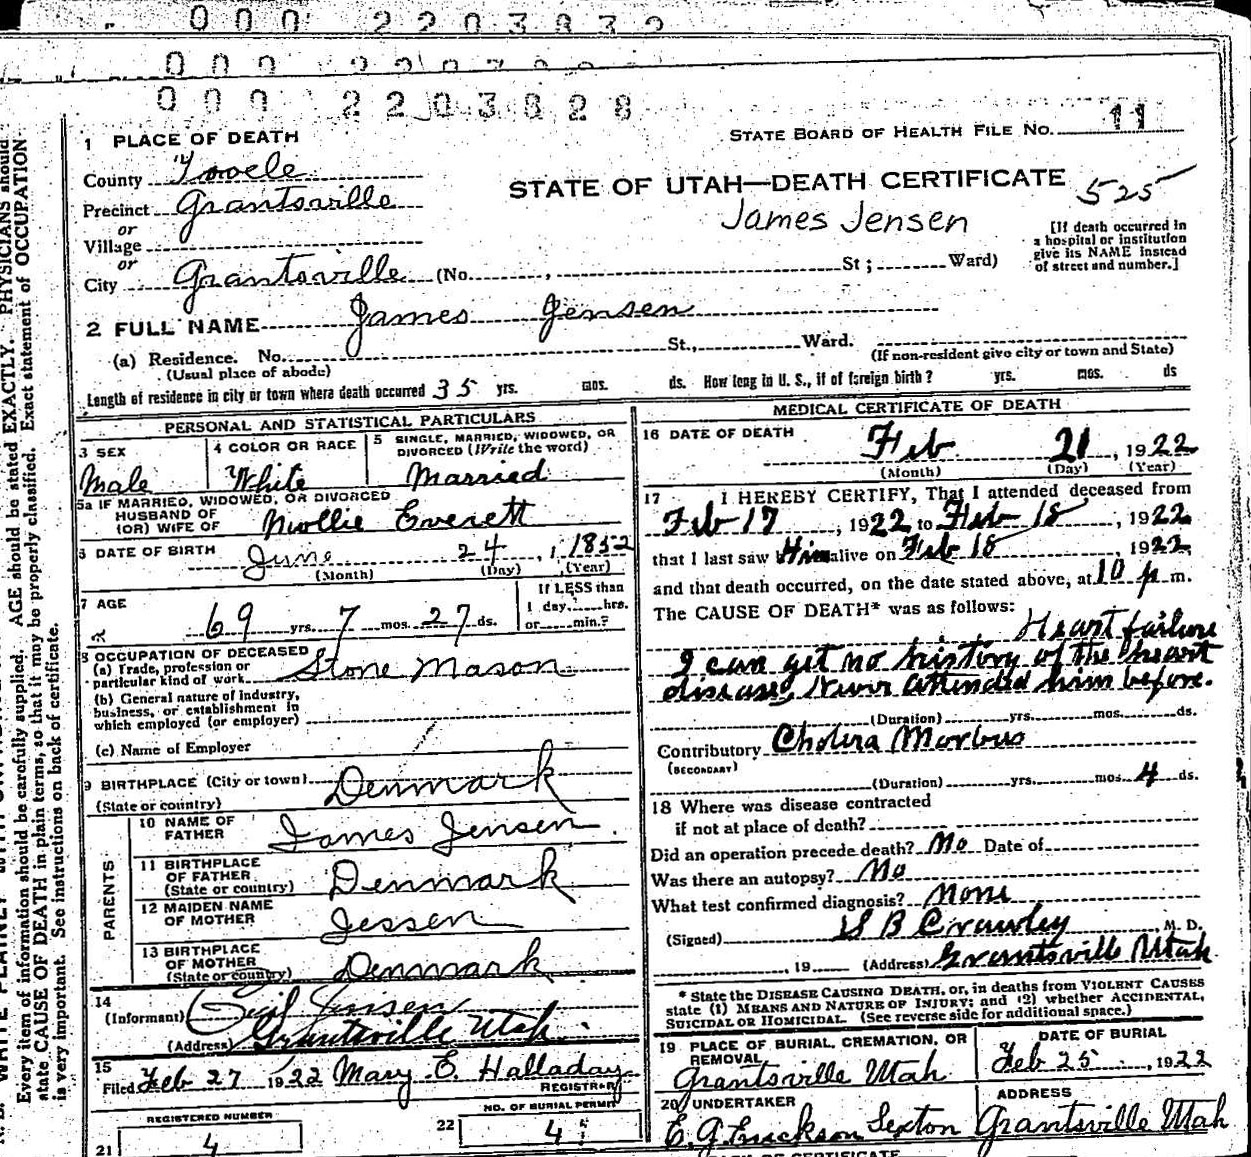 000 2203832
000 2203828
1 PLACE OF DEATH
STATE BOARD OF HEALTH FILE No. 11
County Tooele
STATE OF UTAH—DEATH CERTIFICATE 525
Precinct Grantsville
James Jensen
or
Village
[If death occurred in
a hospital or institution
give its NAME instead
of street and number.]
or
City Grantsville (No. , St ; Ward)
2 FULL NAME James Jensen
(a) Residence. No. St., Ward.
(Usual place of abode)
(If non-resident give city or town and State)
Length of residence in city or town where death occurred 35 yrs. mos. ds. How long in U. S., if of foreign birth? yrs. mos. ds
PERSONAL AND STATISTICAL PARTICULARS
3 SEX
Male
4 COLOR OR RACE
White
5 SINGLE, MARRIED, WIDOWED, OR
DIVORCED (Write the word)
Married
5a IF MARRIED, WIDOWED, OR DIVORCED
HUSBAND OF
(OR) WIFE OF Mollie Everett
6 DATE OF BIRTH June 24, 1852
(Month) (Day) (Year)
7 AGE
69 yrs. 7 mos. 27 ds.
If LESS than
1 day, hrs.
or min.?
8 OCCUPATION OF DECEASED
(a) Trade, profession or
particular kind of work Stone Mason
(b) General nature of industry,
business, or establishment in
which employed (or employer)
(c) Name of Employer
9 BIRTHPLACE (City or town) Denmark
(State or country)
PARENTS
10 NAME OF
FATHER James Jensen
11 BIRTHPLACE
OF FATHER
(State or country) Denmark
12 MAIDEN NAME
OF MOTHER Jessen
13 BIRTHPLACE
OF MOTHER
(State or country) Denmark
14
(Informant) Jensen
(Address) Grantsville Utah
15
Filed Feb 27 1922 Mary E. Halladay
REGISTRAR
REGISTERED NUMBER
21 4
NO. OF BURIAL PERMIT
22 4
MEDICAL CERTIFICATE OF DEATH
16 DATE OF DEATH
Feb 21, 1922
(Month) (Day) (Year)
17 I HEREBY CERTIFY, That I attended deceased from
Feb 17, 1922 to Feb 18, 1922
that I last saw Him alive on Feb 18, 1922
and that death occurred, on the date stated above, at 10 p m.
The CAUSE OF DEATH* was as follows:
Heart failure
I can get no history of the heart
disease, Never attended him before.
(Duration) yrs. mos. ds.
Contributory Cholera Morbus
(SECONDARY)
(Duration) yrs. mos. 4 ds.
18 Where was disease contracted
if not at place of death?
Did an operation precede death? No Date of
Was there an autopsy? No
What test confirmed diagnosis? None
(Signed) S B Crawley, M. D.
, 19 (Address) Grantsville Utah
* State the DISEASE CAUSING DEATH, or, in deaths from VIOLENT CAUSES
state (1) MEANS AND NATURE OF INJURY; and (2) whether ACCIDENTAL,
SUICIDAL OR HOMICIDAL. (See reverse side for additional space.)
19 PLACE OF BURIAL, CREMATION, OR
REMOVAL
Grantsville Utah
DATE OF BURIAL
Feb 25, 1922
20 UNDERTAKER
E. G. Erickson Sexton
ADDRESS
Grantsville Utah
Every item of information should be carefully supplied. AGE should be stated EXACTLY. PHYSICIANS should
state CAUSE OF DEATH in plain terms, so that it may be properly classified. Exact statement of OCCUPATION
is very important. See instructions on back of certificate.